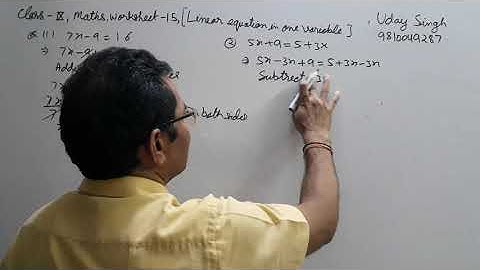 Class-IX, Maths, worksheet-15, [Linear equation in one variable]
Uday Singh
9810049287
(1) 7x-9=16
⇒ 7x-9
Add
7x
7x
both sides
② 5x+9=5+3x
⇒ 5x-3x+9=5+3x-3x
Subtract 3